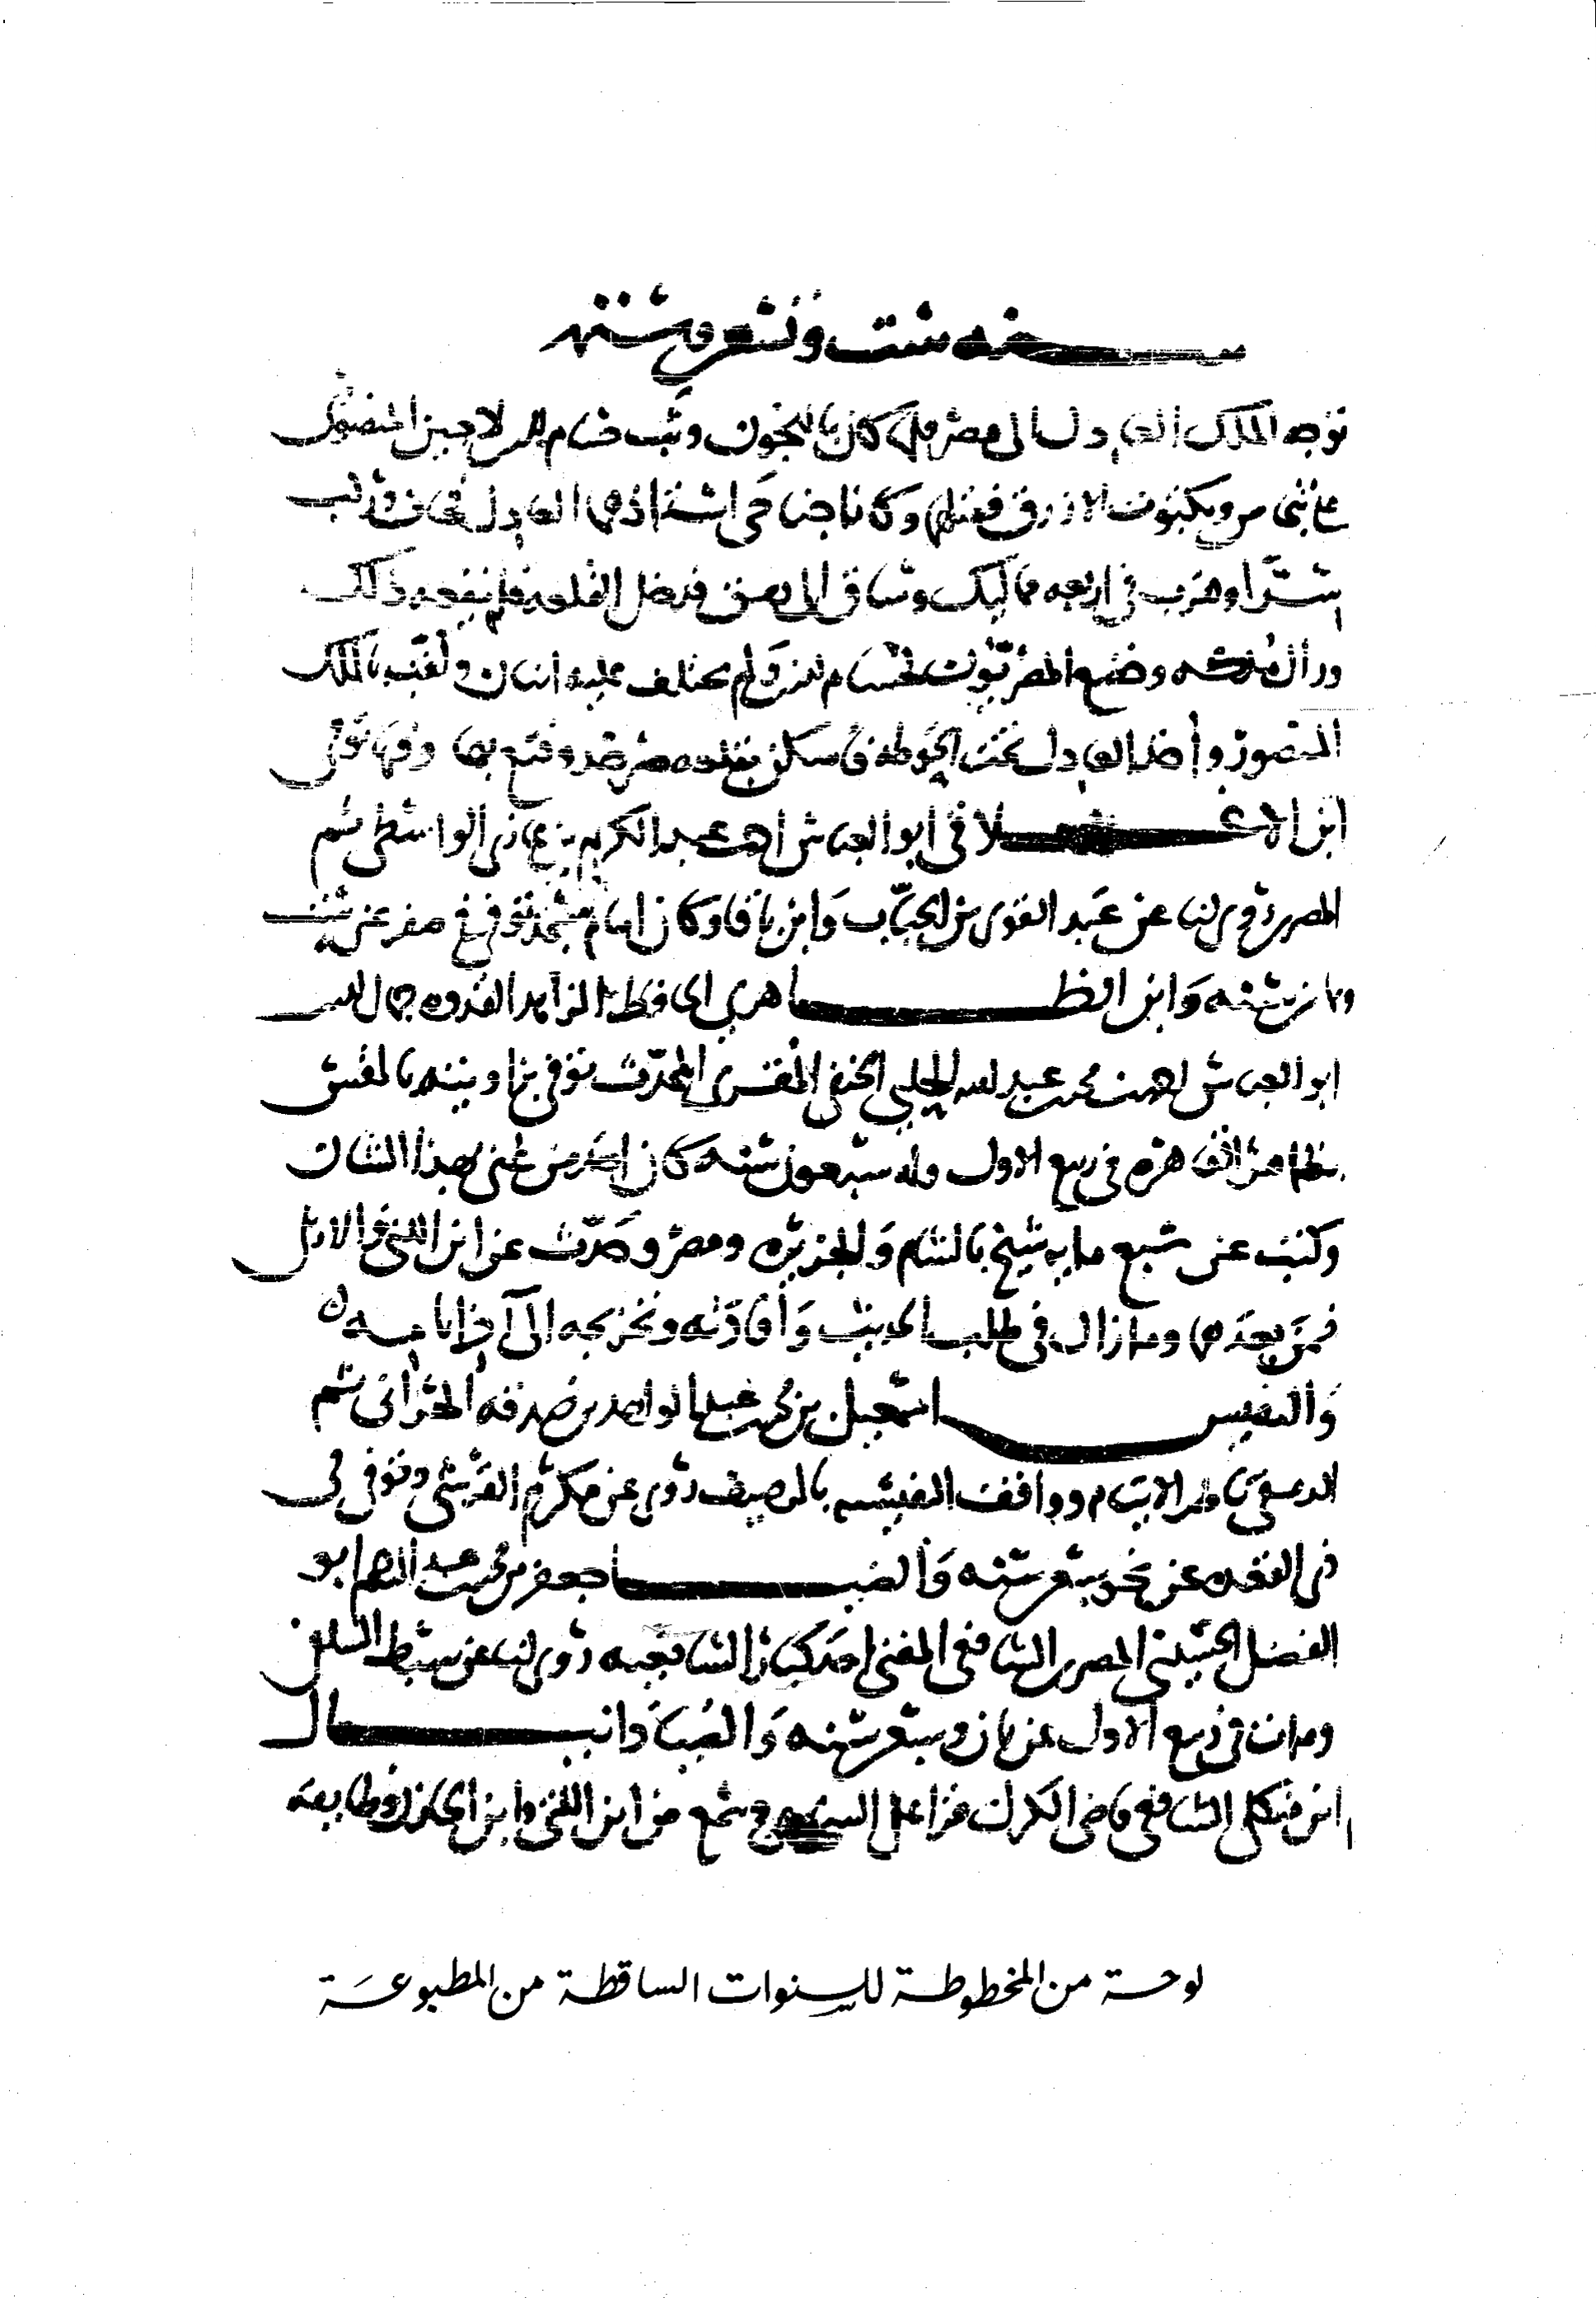 سنة ست وتسعين وستمائة
توجه الملك العادل الى مصر فلما كان باللجون وثب حسام الدين لاجين المنصوري
على بيحاص وبكتوت الازرق فقتلهما وكانا جناحي استاذهما العادل فخاف وركب
سرا وهرب في اربعه مماليك وساق الى دمشق فدخل القلعه فلم ينفعه ذلك
وزال ملكه وخضع المصريون لحسام الدين ولم يختلف عليه اثنان ولقب بالملك
المنصور واخذ العادل تحت الحوطه فاسكن بقلعه صرخد وقنع بها وفيها توفي
ابن الاعلاقي ابو العباس احمد بن عبد الكريم بن غازي الواسطي ثم
المصري روى لنا عن عبد القوي بن الجباب وابن باقا وكان امام مسجد توفي في صفر عن ست
وثمانين سنه وابن الظاهري الحافظ الزاهد القدوه جمال الدين
ابو العباس احمد بن محمد بن عبد الله الحلبي الحنفي المقرئ المحدث توفي بزاويته بالمقس
بظاهر القاهره في ربيع الاول وله سبعون سنه كان احد من عني بهذا الشان
وكتب عن سبع مايه شيخ بالشام والجزيره ومصر وحدث عن ابن اللتي والاربلي
فمن بعدهما وما زال في طلب الحديث وافادته وتخريجه الى آخر ايامه
والنفيس اسمعيل بن محمد بن عبد الواحد بن صدقه الحراني ثم
الدمشقي ناظر الايتام وواقف النفيسيه بالرصيف روى عن مكرم القرشي وتوفي في
ذي القعده عن نحو سبعين سنه والضيا جعفر بن محمد بن عبد الرحيم ابو
الفضل الحسيني المصري الشافعي المفتي احد كبار الشافعيه روى لنا عن سبط السلفي
ومات في ربيع الاول عن ثمان وسبعين سنه والضيا دانيال
ابن منكلي الشافعي قاضي الكرك قرا على السخاوي وسمع من ابن اللتي وابن الخازن وطايفه
لوحة من المخطوطة للسنوات الساقطة من المطبوعة